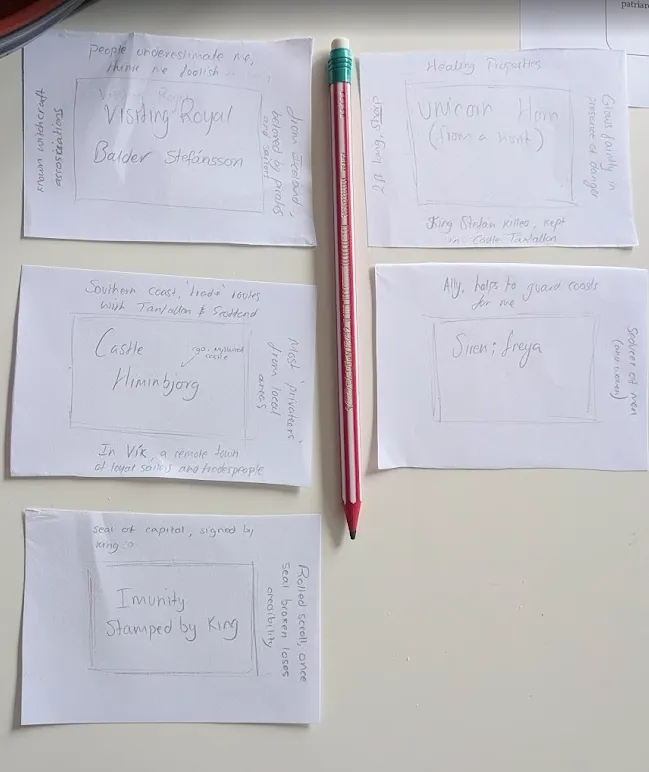 people underestimate me,
think me foolish
Visiting Royal
Balder Stefánsson
known witchcraft
accusations
from Iceland,
beloved by pirates
and
Healing Properties
Unicorn Horn
(from a hunt)
Glows faintly in
presence of danger
King Stefan killed, kept
in Castle Tantallon
Southern coast, 'trade' routes
with Tantallon & Scotland
Castle
Himinbjörg
Most 'privateers'
from local
areas
In Vík, a remote town
of loyal sailors and tradespeople
Ally, helps to guard coasts
for me
Siren; Freya
Seducer of men
(and women)
seal of capital, signed by
king
Imunity
Stamped by King
Rolled scroll, once
seal broken loses
credibility
patriarc